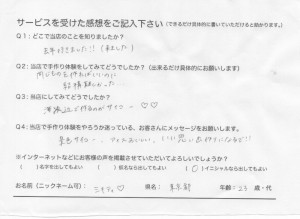 サービスを受けた感想をご記入下さい(できるだけ具体的に書いていただけると助かります。)
Q1:どこで当店のことを知りましたか?
去年行きました!!(来ました)
Q2:当店で手作り体験をしてみてどうでしたか?(出来るだけ具体的にお願いします)
同じものを作ればいいのに
結構難しかった…
Q3:当店にしてみてどうでしたか?
海を見ながら作るのがサイコー♡♡
Q4:当店で手作り体験をやろうか迷っている、お客さんにメッセージをお願いします。
景色サイコー、
いい思い出
※インターネットなどにお客様の声を掲載させていただいてよろしいでしょうか?
( )名字を出してもよい ( )仮名なら出してもよい (○)イニシャルなら出してもよい
お名前(ニックネーム可):ミキティ♡ 県名:東京都 年齢:23 歳・代